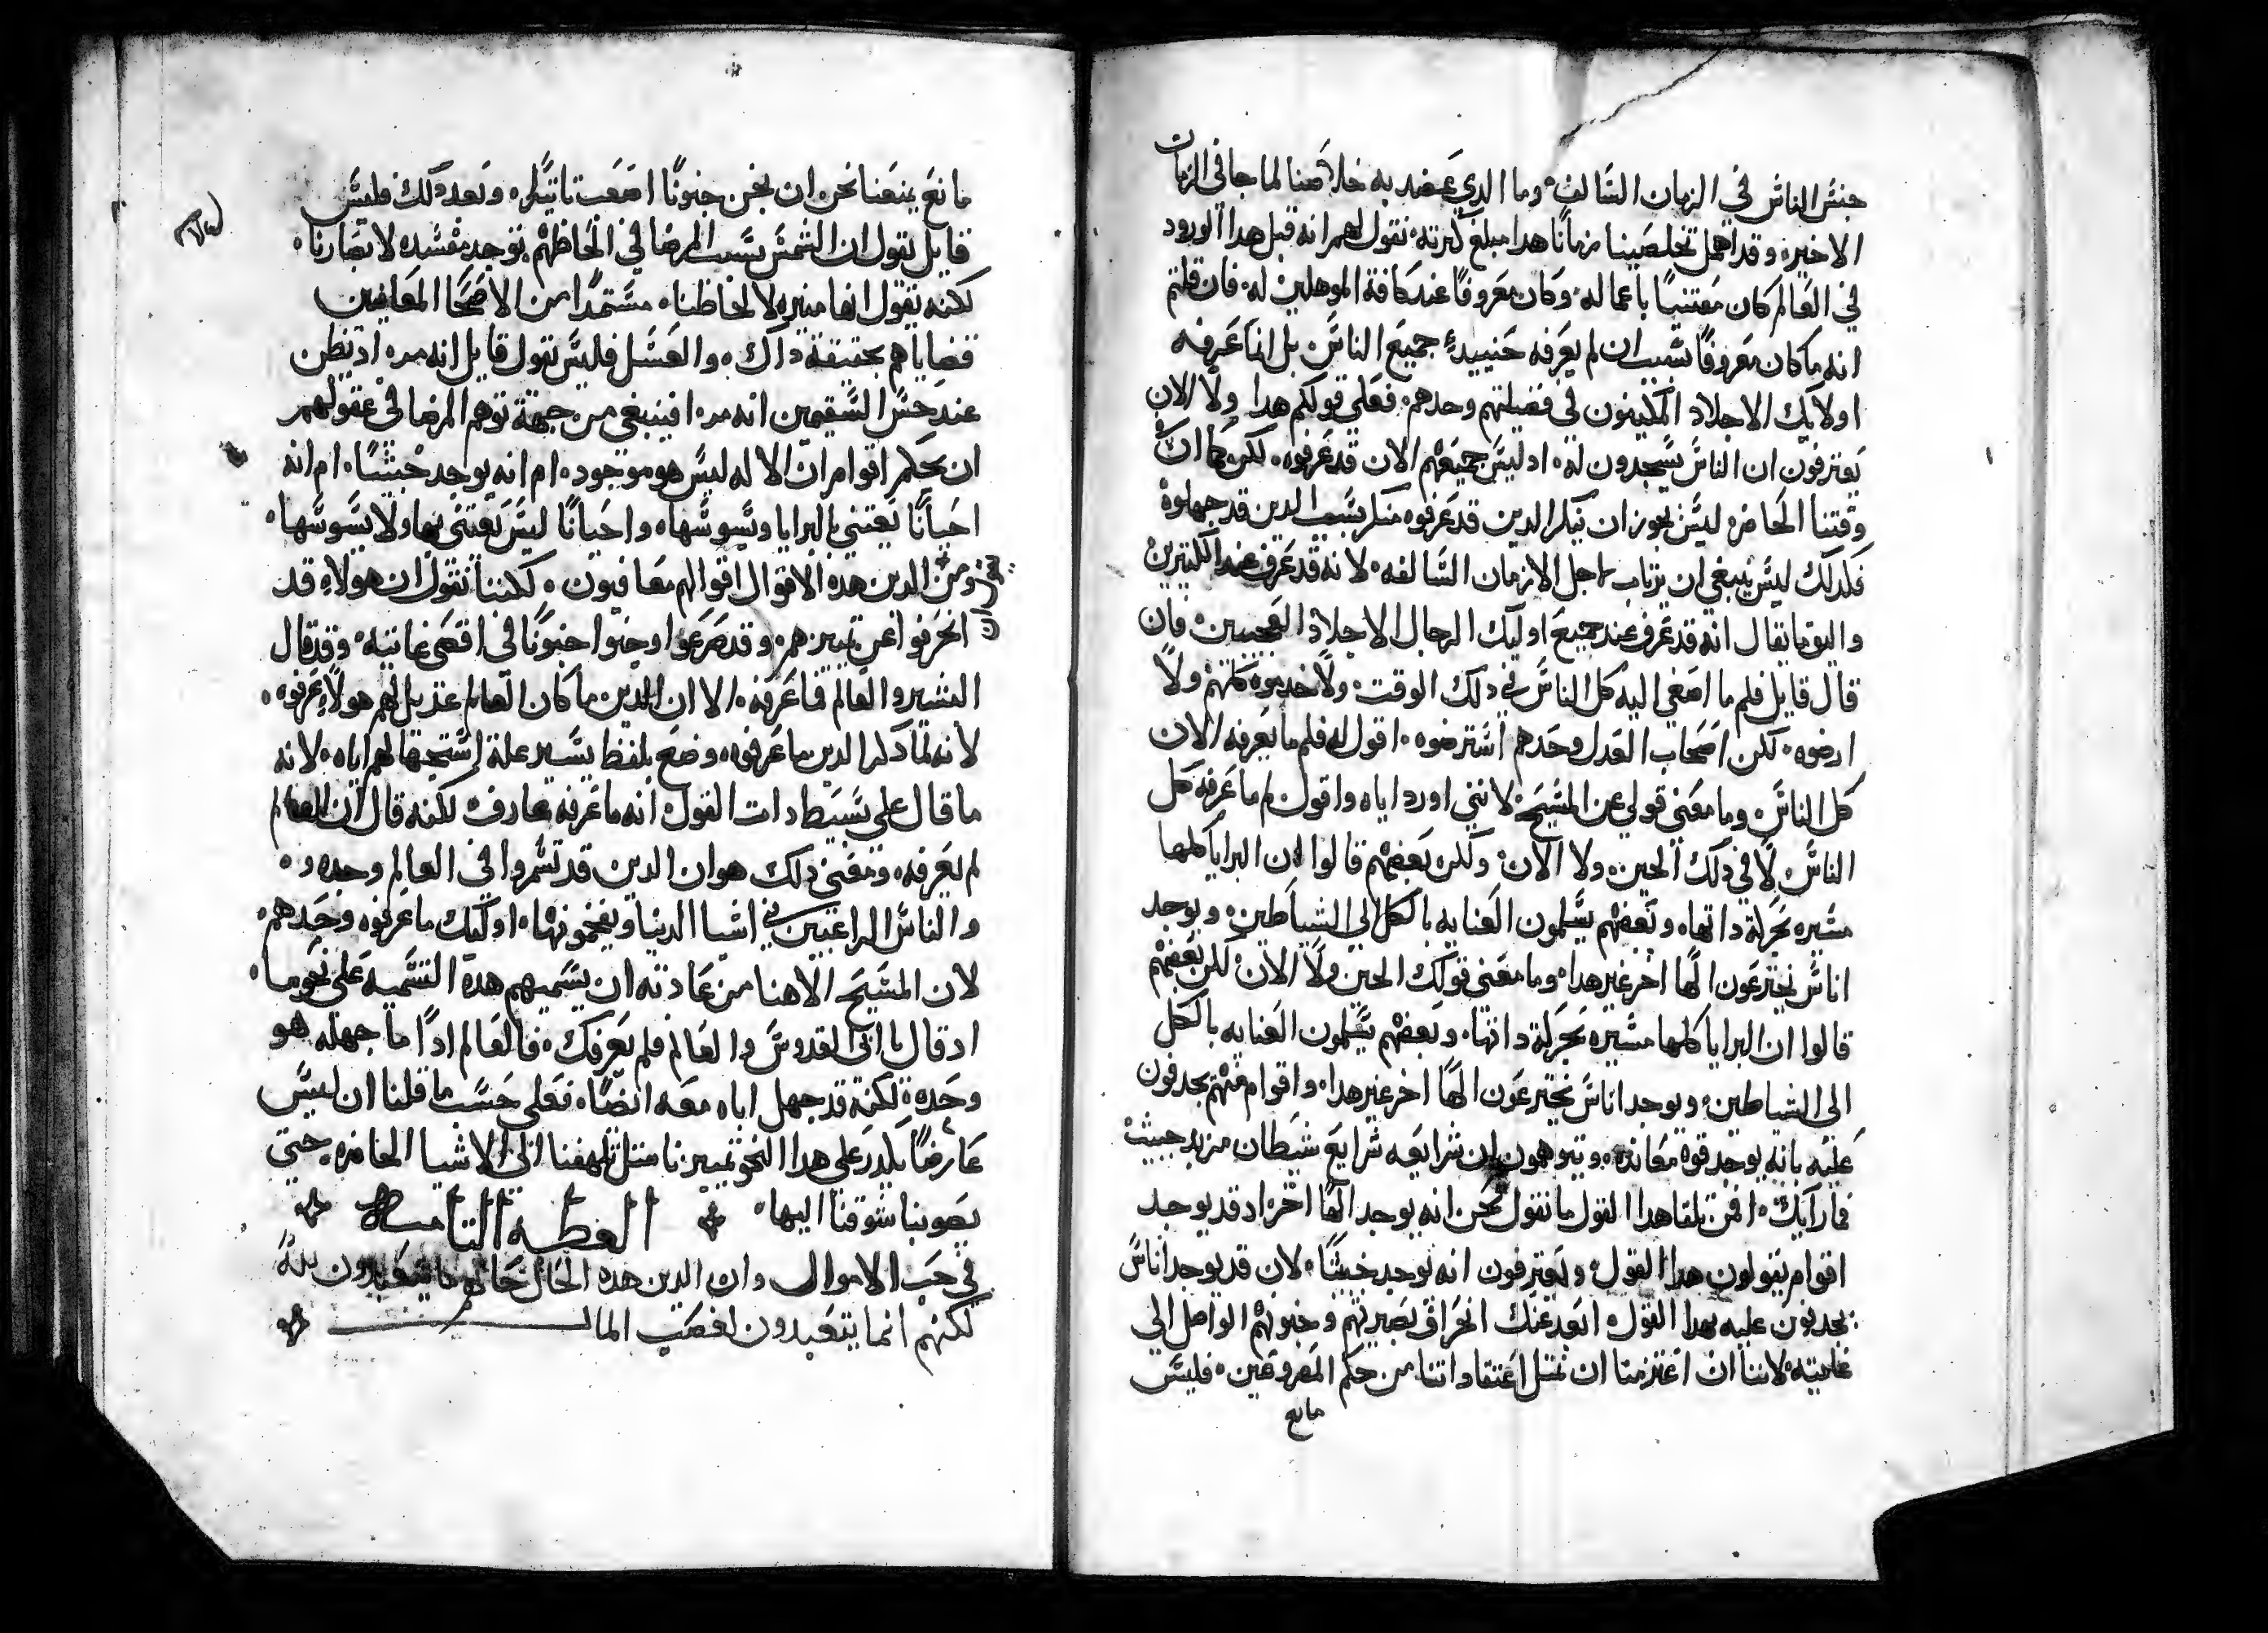 جنس الناس في الزمان السالف وما الدي عضد به خلاصنا لما جا في الزمان
الاخير وقد اهمل تخليصنا زمانًا هدا مبلغ كثرته نقول لهم انه قبل هدا الورود
في العالم كان معتنيًا باعماله وكان معروفًا عند كافة الموهلين له فان قلتم
انه ما كان معروفًا بسبب ان لم يعرفه حينييدٍ جميع الناس بل انما عرفه
اولايك الاجلاد المكينون في فضيلتهم وحدهم فعلي قولكم هدا ولا الان
يعترفون ان الناس يسجدون له اد ليس جميعهم الان قد عرفوه لكن كما ان
وقتنا الحاضر ليس يجوز ان ينكر الدين قد عرفوه منكر بسبب الدين قد جهلوه
فكدلك ليس ينبغي ان يرتاب من اجل الازمان السالفه لانه قد عرف عند الكثيرين
واليق ما يقال انه قد عرف عند جميع اوليك الرجال الاجلاد العجيبين فان
قال قايل فلم ما اصغي اليه كل الناس في دلك الوقت ولا خدموه كلهم ولا
ارضوه لكن اصحاب العدل وحدهم استرضوه اقول له فلم ما يعرفه الان
كل الناس وما معني قولي عن المسيح لانني اورد اياه واقول لم ما عرفه كل
الناس لا في دلك الحين ولا الان ولكن بعضهم قالوا ان البرايا كلها
مسيره بحركة داتها وبعضهم يسلمون العنايه بالكل الي الشياطين ويوجد
اناس يخترعون الهًا اخر غير هدا وما معني قولك الحين ولا الان لكن بعضهم
قالوا ان البرايا كلها مسيره بحركة داتها وبعضهم يسلمون العنايه بالكل
الي الشياطين ويوجد اناس يخترعون الهًا اخر غير هدا واقوام منهم يجدفون
عليه بانه يوجد قوه معانده ويتوهمون ان شرايعه شرايع شيطان مريد خبيث
فما رايك افمن تلقا هدا القول ما نقول نحن انه يوجد الهًا اخر اد قد يوجد
اقوام يقولون هدا القول ويعترفون انه يوجد خبيثًا لان قد يوجد اناس
يجدفون عليه بهدا القول ابعد عنك انحراف بصيرتهم وجنونهم الواصل الي
غايته لاننا ان اعتزمنا ان نمثل اعتقاداتنا من حكم المصروعين فليس
مانع
مانع يمنعنا نحن ان نجن جنونًا اصعب تاثيره وبعد دلك فليس
قايل يقول ان الشمس بسبب المرضا في الحاظهم توجد مفسده لابصارنا
لكنه يقول انها منيره لالحاظنا مستمدًا من الاصحا المعافين
قضاياهم بحقيقة داك والعسل فليس يقول قايل انه مر اد يظن
عند حس السقيمين انه مر افينبغي من جهة توهم المرضا في عقولهم
ان يحكم اقوام ان الاله ليس هو موجود ام انه يوجد خبيثًا ام انه
احيانًا يعتني بالبرايا ويسوسها واحيانًا ليس يعتني بها ولا يسوسها
ومن الدين هده الاقوال اقوالهم معافيون لكننا نقول ان هولاءِ قد
انحرفوا عن تمييزهم وقد صرعوا وجنوا جنونًا في اقصي غايته وقد قال
البشير والعالم فما عرفه الا ان الدين ما كان العالم عديل لهم هولاءِ عرفوه
لانه لما دكر الدين ما عرفوه وضع بلفظ يسير علة استجهالهم اياه لانه
ما قال علي بسيط دات القول انه ما عرفه عارف لكنه قال ان العالم
لم يعرفه ومعني دلك هو ان الدين قد تسمروا في العالم وحده
والناس الراغبين في اشيا الدنيا ويفخمونها اوليك ما عرفوه وحدهم
لان المسيح الاهنا من عادته ان يسميهم هده التسميه علي نحو ما
اد قال يا ابي القدوس والعالم فلم يعرفك فالعالم ادًا ما جهله هو
وحده لكنه قد جهل اباه معه ايضًا فعلي حسب ما قلنا ان ليس
عارضًا يكدر علي هدا النحو تمييزنا مثل تلهفنا الي الاشيا الحاضره حتي
يصوبنا شوقنا اليها العظه الثامنه
في حب الاموال وان الدين هده الحال حالهم ما يتعبدون لله
لكنهم انما يتعبدون لغصب المال